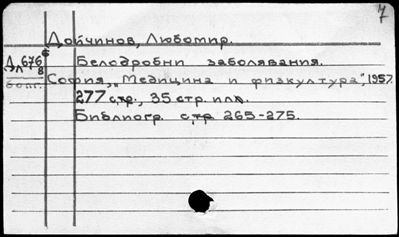 7
Дойчинов, Любомир.
Белодробни заболявания.
София, „Медицина и физкултура“, 1957.
277 стр., 35 стр. илл.
Библиогр. стр. 265-275.
болг.